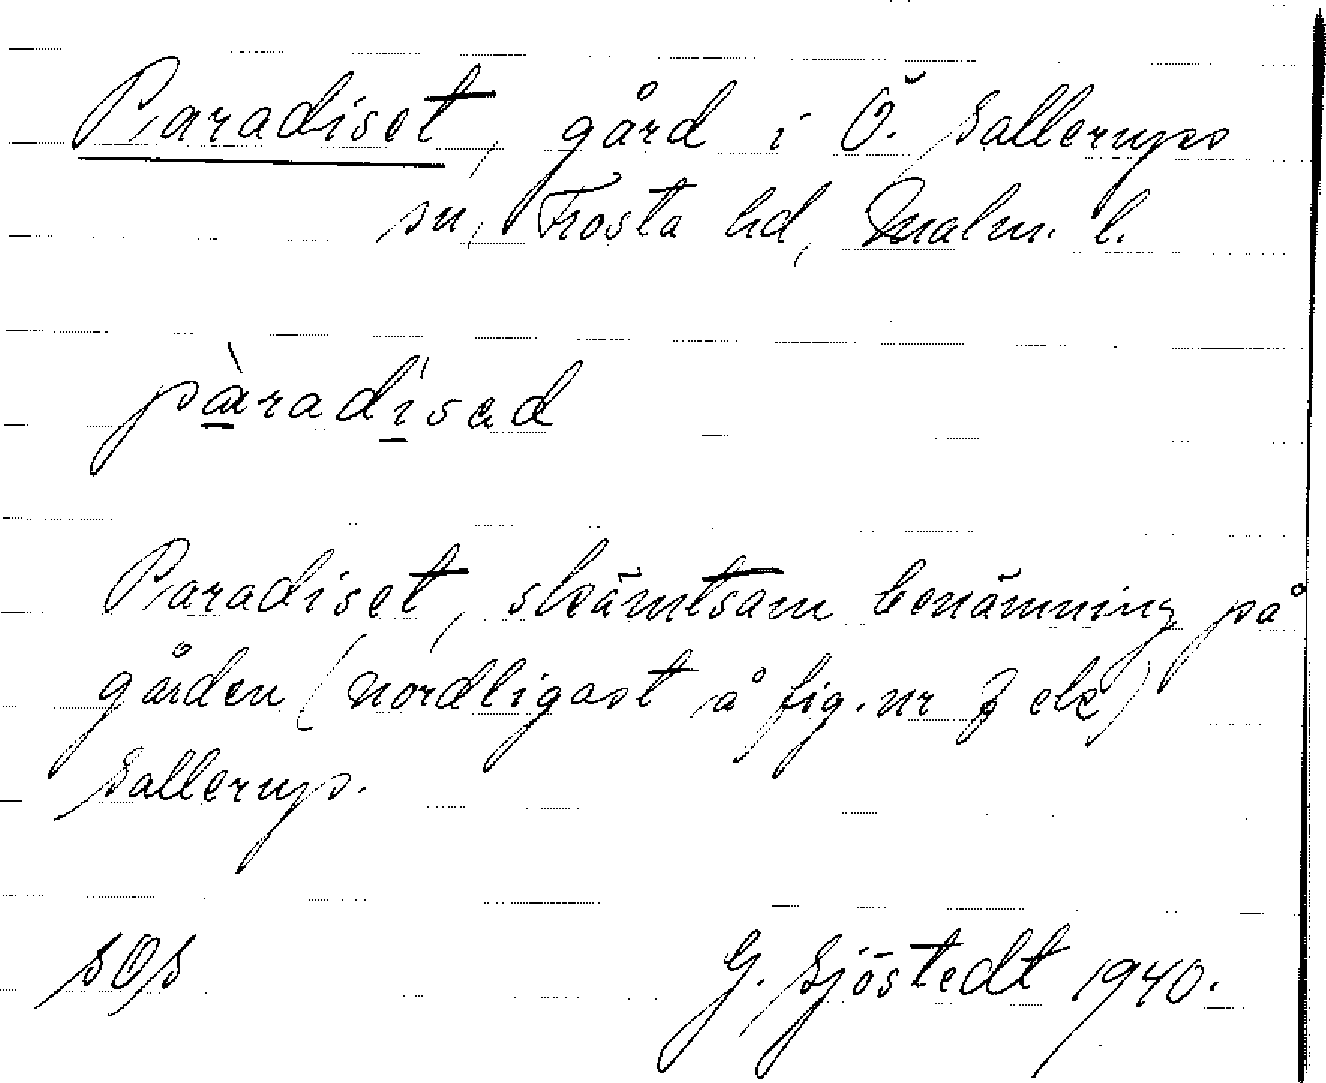 Paradiset, gård i Ö. Sallerups
sn, Frosta hd, Malm. l.
pàradísad
Paradiset, skämtsam benämning på
gården (nordligast å fig. nr 7 ek)
Sallerup.
SOS G. Sjöstedt 1940.